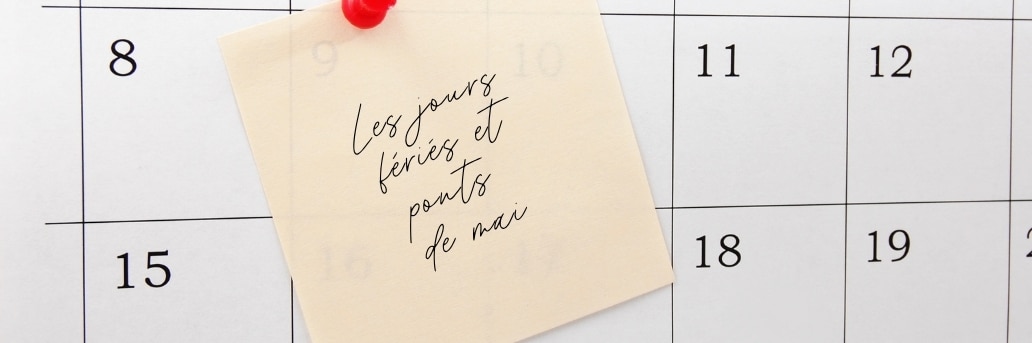 8 9 10 11 12
Les jours
fériés et
ponts
de mai
15 16 17 18 19